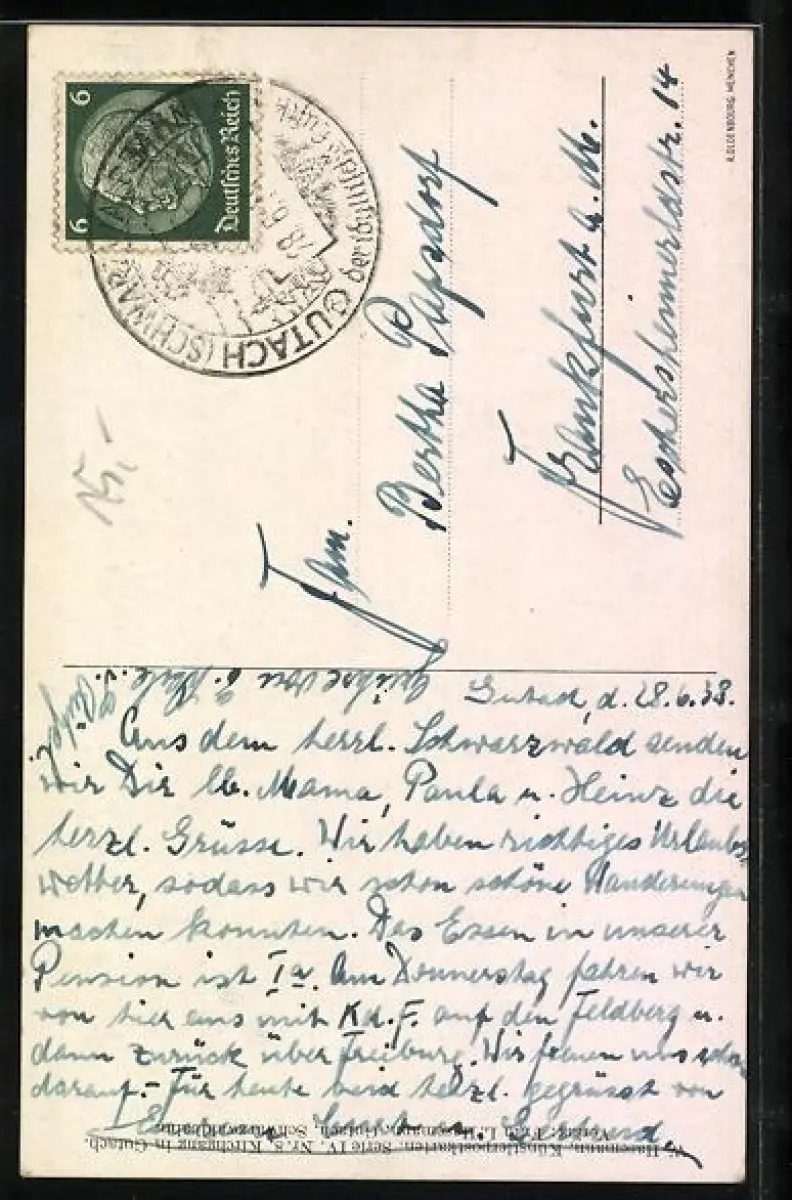 Gutach, d. 28.6.38.
Aus dem herrl. Schwarzwald senden
wir Dir lb. Mama, Paula u. Heinz die
herzl. Grüsse. Wir haben richtiges Urlaubs
wetter, sodass wir schon schöne Wanderungen
machen konnten. Das Essen in unserer
Pension ist Ia. Am Donnerstag fahren wir
von hier aus mit K.d.F. auf den Feldberg u.
dann zurück über Freiburg. Wir freuen uns schon
darauf.- Für heute seid herzl. gegrüsst von
Grüsse von
Fam.
Bertha Papsdorf
Frankfurt a. M.
Eschersheimerldstr. 14
6 6
Deutsches Reich
GUTACH (SCHWARZ
28.6.
R. OLDENBOURG, MÜNCHEN
Hasemann, Künstlerpostkarten. Serie IV, Nr. 8. Kirchgang in Gutach.
Verlag: Gutach, Schwarzwaldbahn.